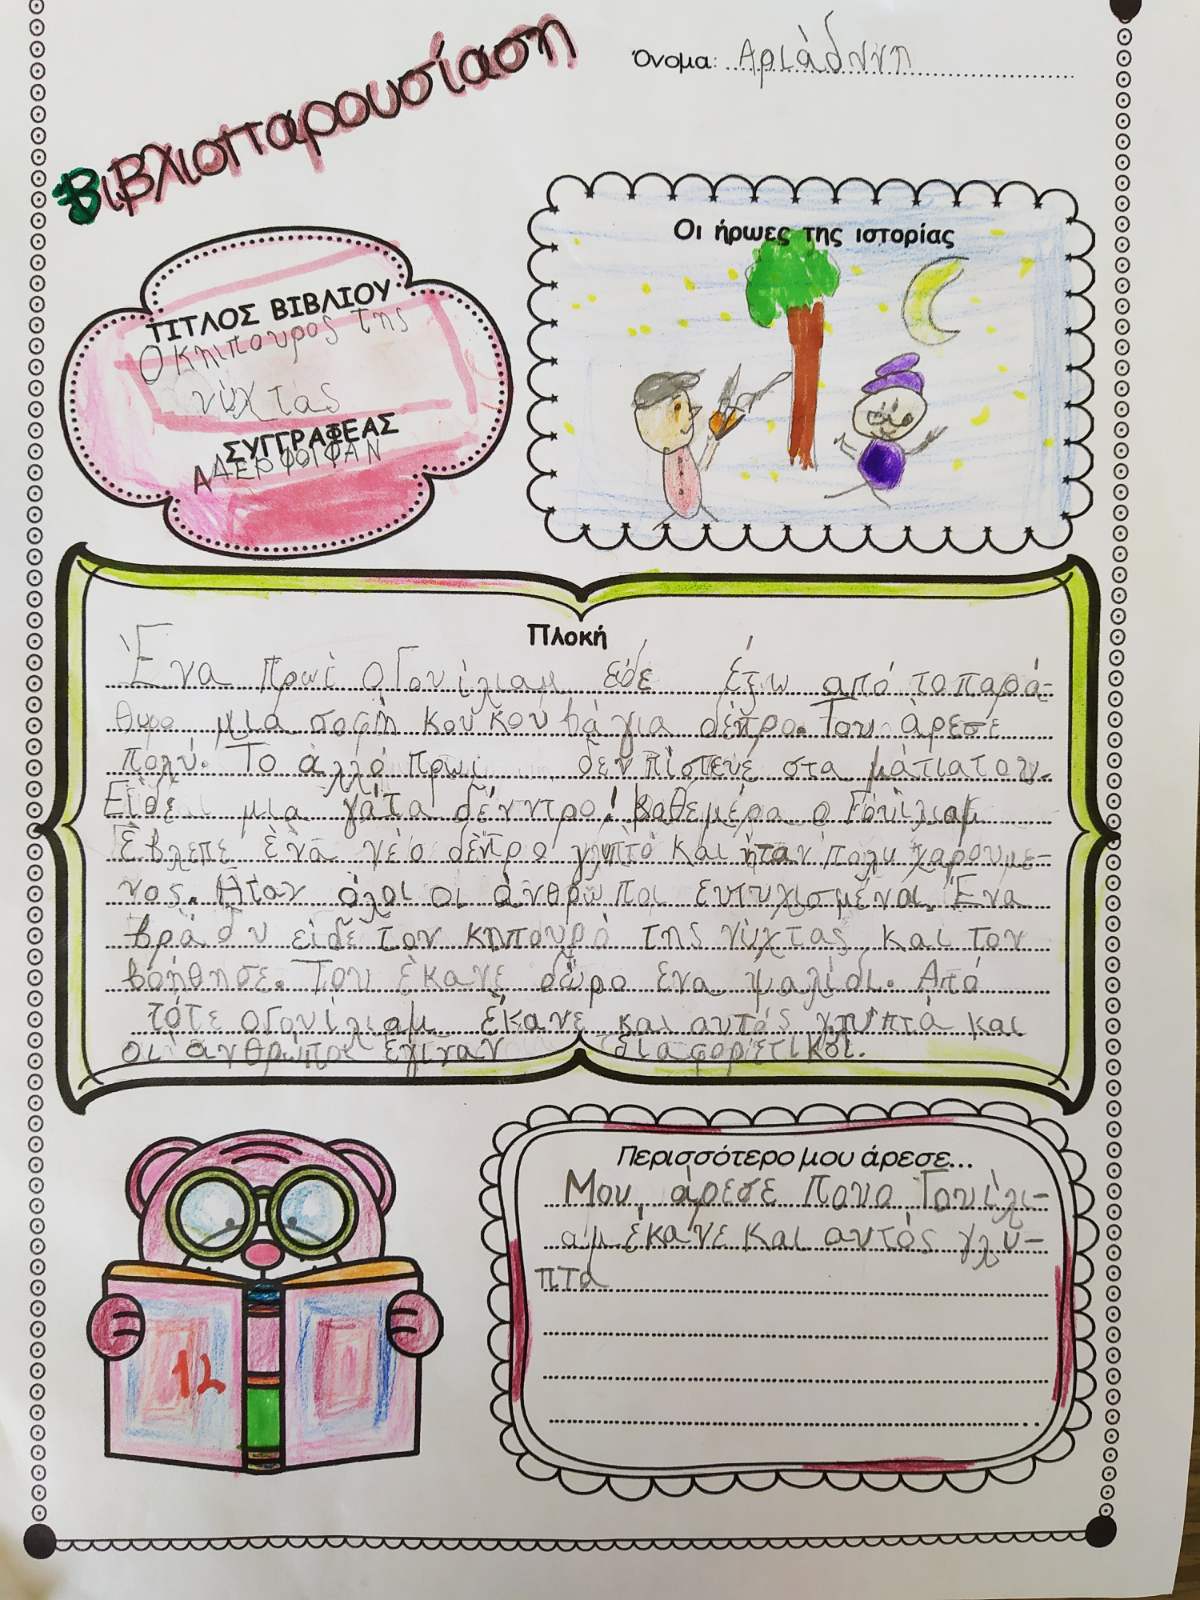 Βιβλιοπαρουσίαση
Όνομα: Αριάδνη
ΤΙΤΛΟΣ ΒΙΒΛΙΟΥ
Ο κηπουρος της
νύχτας
ΣΥΓΓΡΑΦΕΑΣ
ΑΔΕΡΦΟΙ ΦΑΝ
Οι ήρωες της ιστορίας
Πλοκή
Ένα πρωί ο Γουίλιαμ είδε έξω από το παρά-
θυρο μια σοφή κουκουβάγια δέντρο. Του άρεσε
πολύ. Το άλλο πρωί δεν πίστευε στα μάτια του.
Είδε μια γάτα δέντρο! Καθεμέρα ο Γουίλιαμ
Έβλεπε ένα νέο δέντρο γλυπτό και ήταν πολυ χαρουμε-
νος. Ήταν όλοι οι άνθρωποι ευτυχισμένοι. Ένα
βράδυ είδε τον κηπουρό της νύχτας και τον
βοήθησε. Του έκανε δώρο ένα ψαλίδι. Από
τότε ο Γουίλιαμ έκανε και αυτός γλυπτά και
οι άνθρωποι έγιναν διαφορετικοί.
Περισσότερο μου άρεσε...
Μου άρεσε που ο Γουίλι-
αμ έκανε και αυτός γλυ-
πτα
12